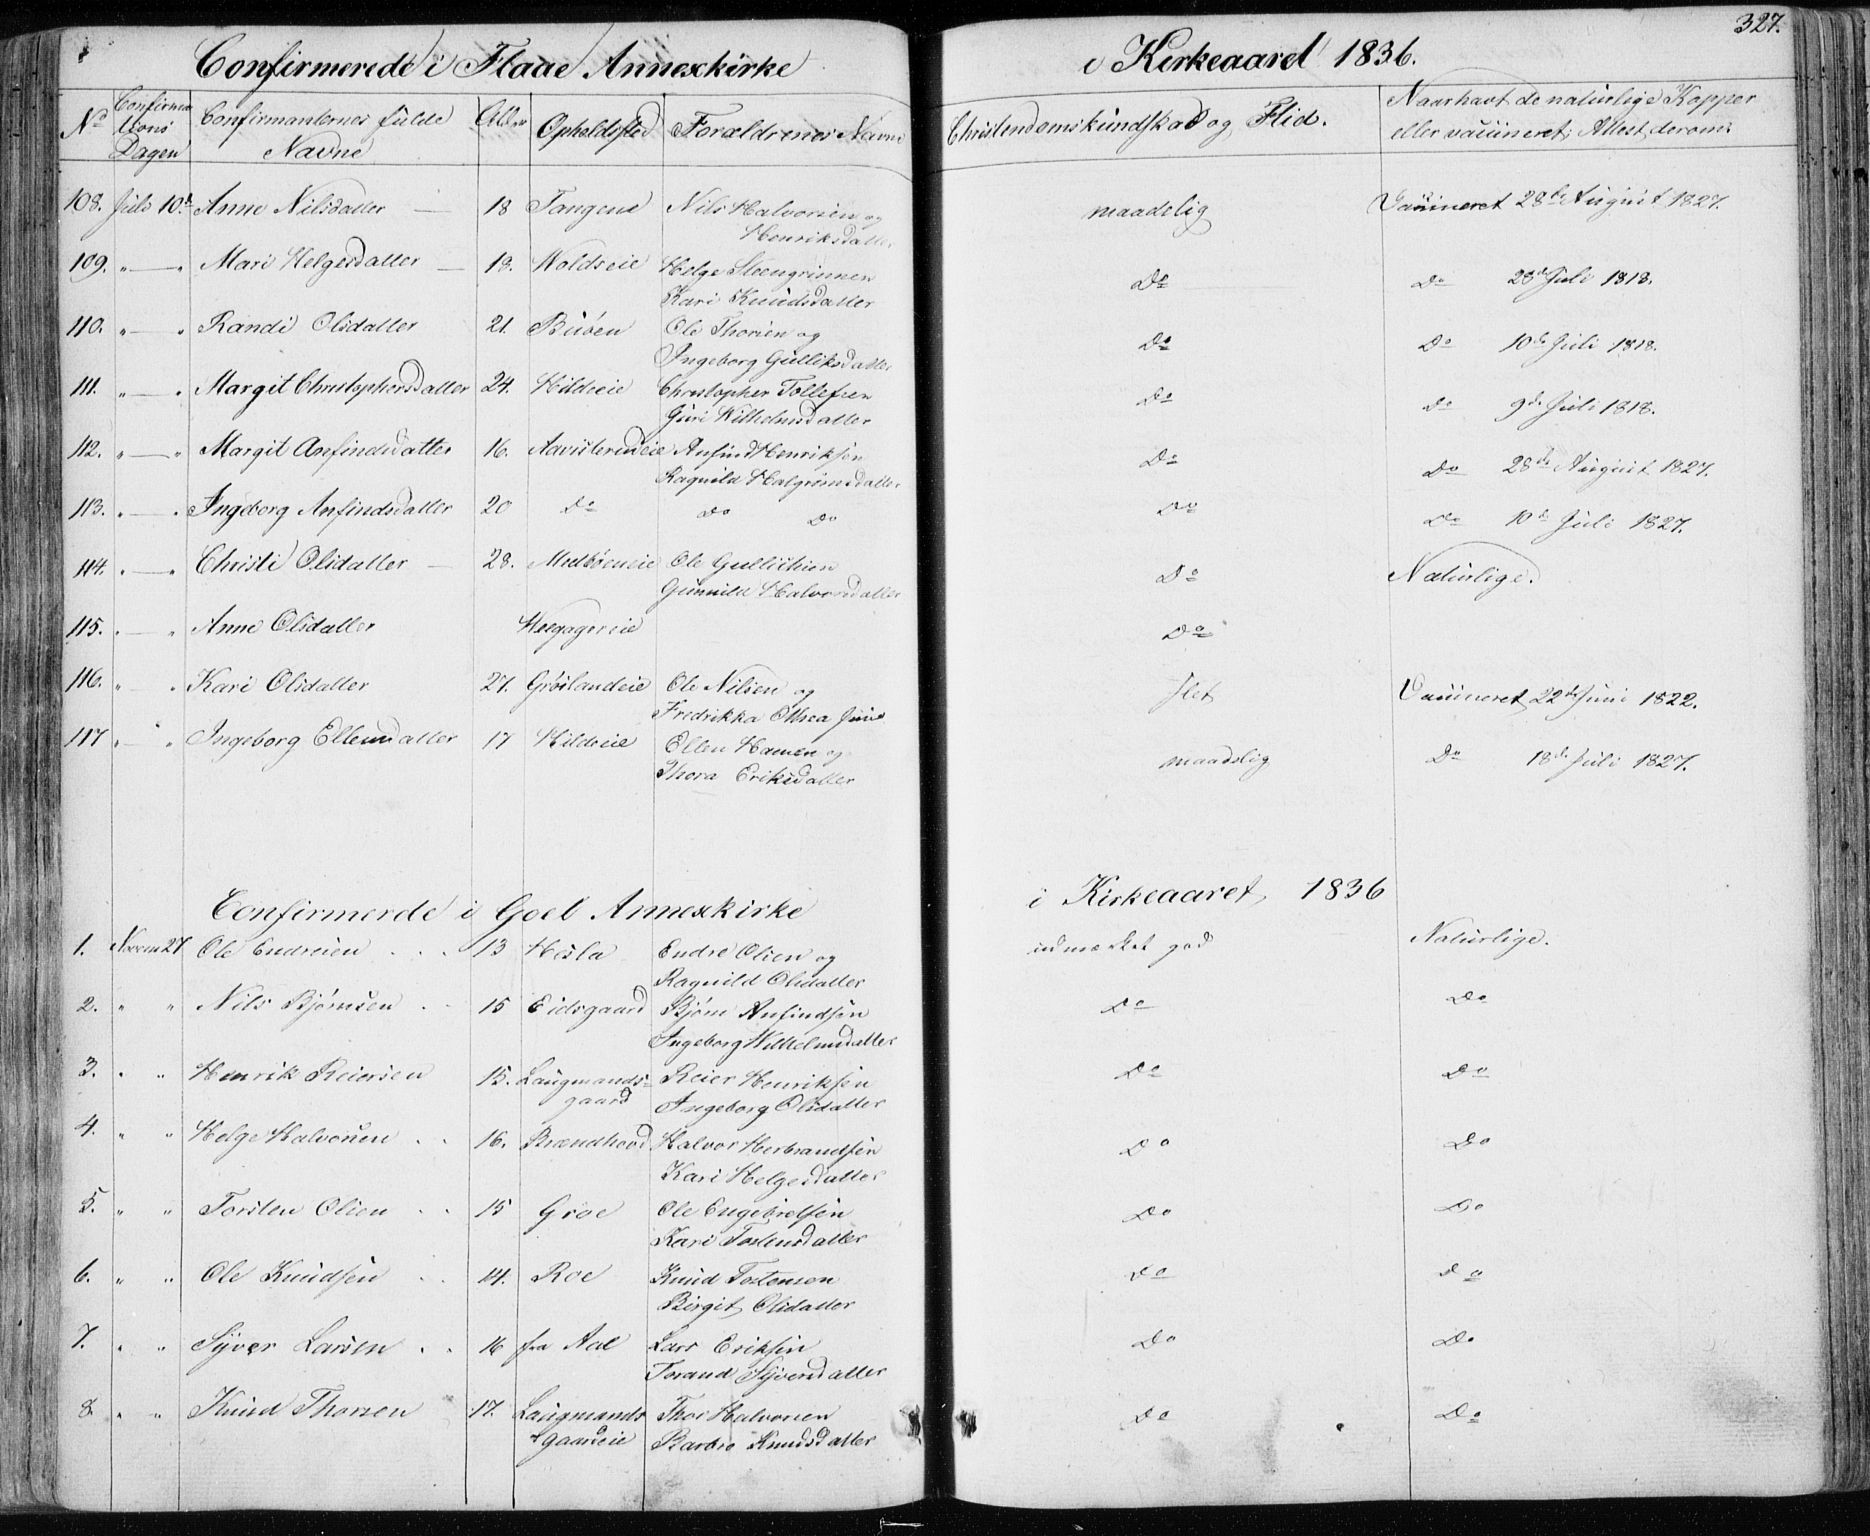 327.
Confirmerede i Flaae Annexkirke i Kirkeaaret 1836.
No Confirmations Dagen Confirmanternes fulde Navne Alder Opholdsted Forældrenes Navne Christendomskundskab og Flid. Naar havt de naturlige Kopper
eller vacineret, Attest derom.
108. Juli 10d. Anne Nilsdatter 18 Tangene Nils Halvorsen og maadelig Vacineret 28de August 1827.
Henriksdatter
109. " — " Mari Helgesdatter 18. Woldseie Helge Steengrimsen Do Do 28d Juli 1818.
Kari Knudsdatter
110. " — " Randi Olsdatter 21. Buöen Ole Thorsen og Do Do 10d Juli 1818.
Ingeborg Gulliksdatter
111. " — " Margit Christophersdatter 24. Hildeeie Christopher Tollefsen Do Do 9d Juli 1818.
Guri Wilhelmsdatter
112. " — " Margit Anfindsdatter 16. Anfind Henriksen Do Do 28de August 1827.
Ragnild Halgrimsdatter
113. " — " Ingeborg Anfindsdatter 20 Do Do Do Do Do 10d Juli 1827.
114. " — " Christi Olsdatter 28. Medböeneie Ole Gullichsen Do Naturlige.
Gunnild Halvorsdatter
115. " — " Anne Olsdatter Do
116. " " Kari Olsdatter 27. Gröslandeie Ole Nilsen og slet Vacineret 22de Juni 1822.
Fredrikka Othea
117 " — " Ingeborg Ellensdatter 17 Hildeeie Ellen Hansen og maadelig Do 18d Juli 1827.
Thora Eriksdatter
Confirmerde i Goel Annexkirke i Kirkeaaret 1836
1. Novem 27 Ole Endresen . . . 13 Hesla Endre Olsen og udmærket god Naturlige.
Ragnild Olsdatter
2. " " Nils Bjørnsen . . 15 Eidsgaard Bjørn Anfindsen Do Do
Ingeborg Wilhelmsdatter
3. " " Henrik Reiersen 15. Laugmands- Reier Henriksen Do Do
gaard Ingeborg Olsdatter
4. " " Helge Halvorsen . . 16. Brændhovd Halvor Herbrandsen Do Do
Kari Helgesdatter
5. " " Torsten Olsen . . 15 Groe Ole Engebretsen Do Do
Kari Tostensdatter
6. " " Ole Knudsen . . 14. Roe Knud Tostensen Do Do
Birgit Olsdatter
7. " " Syver Larsen . . 16 fra Aal Lars Eriksen Do Do
Torand Syversdatter
8. " " Knud Thorsen 17. Laugmands Thor Halvorsen Do Do
gaardeie Barbro Knudsdatter